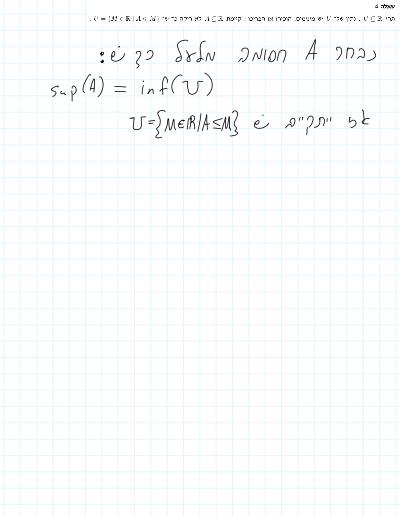 שאלה 4
תהי U ⊆ ℝ. נתון שלקב U יש מינימום. הוכיחו או הפריכו: קיימת A ⊆ ℝ לא ריקה כך ש U = {M ∈ ℝ | A ≤ M}.
נבחר A חסומה מלעל כך ש:
sup(A) = inf(U)
אז יתקיים ש U={M∈ℝ/A≤M}